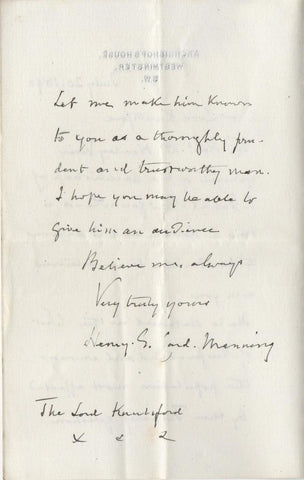 ARCHBISHOP'S HOUSE,
WESTMINSTER,
S.W.
Let me make him known
to you as a thoroughly pru-
dent and trustworthy man.
I hope you may be able to
give him an audience
Believe me, always
Very truly yours
Henry E. Card. Manning
The Lord Knutsford